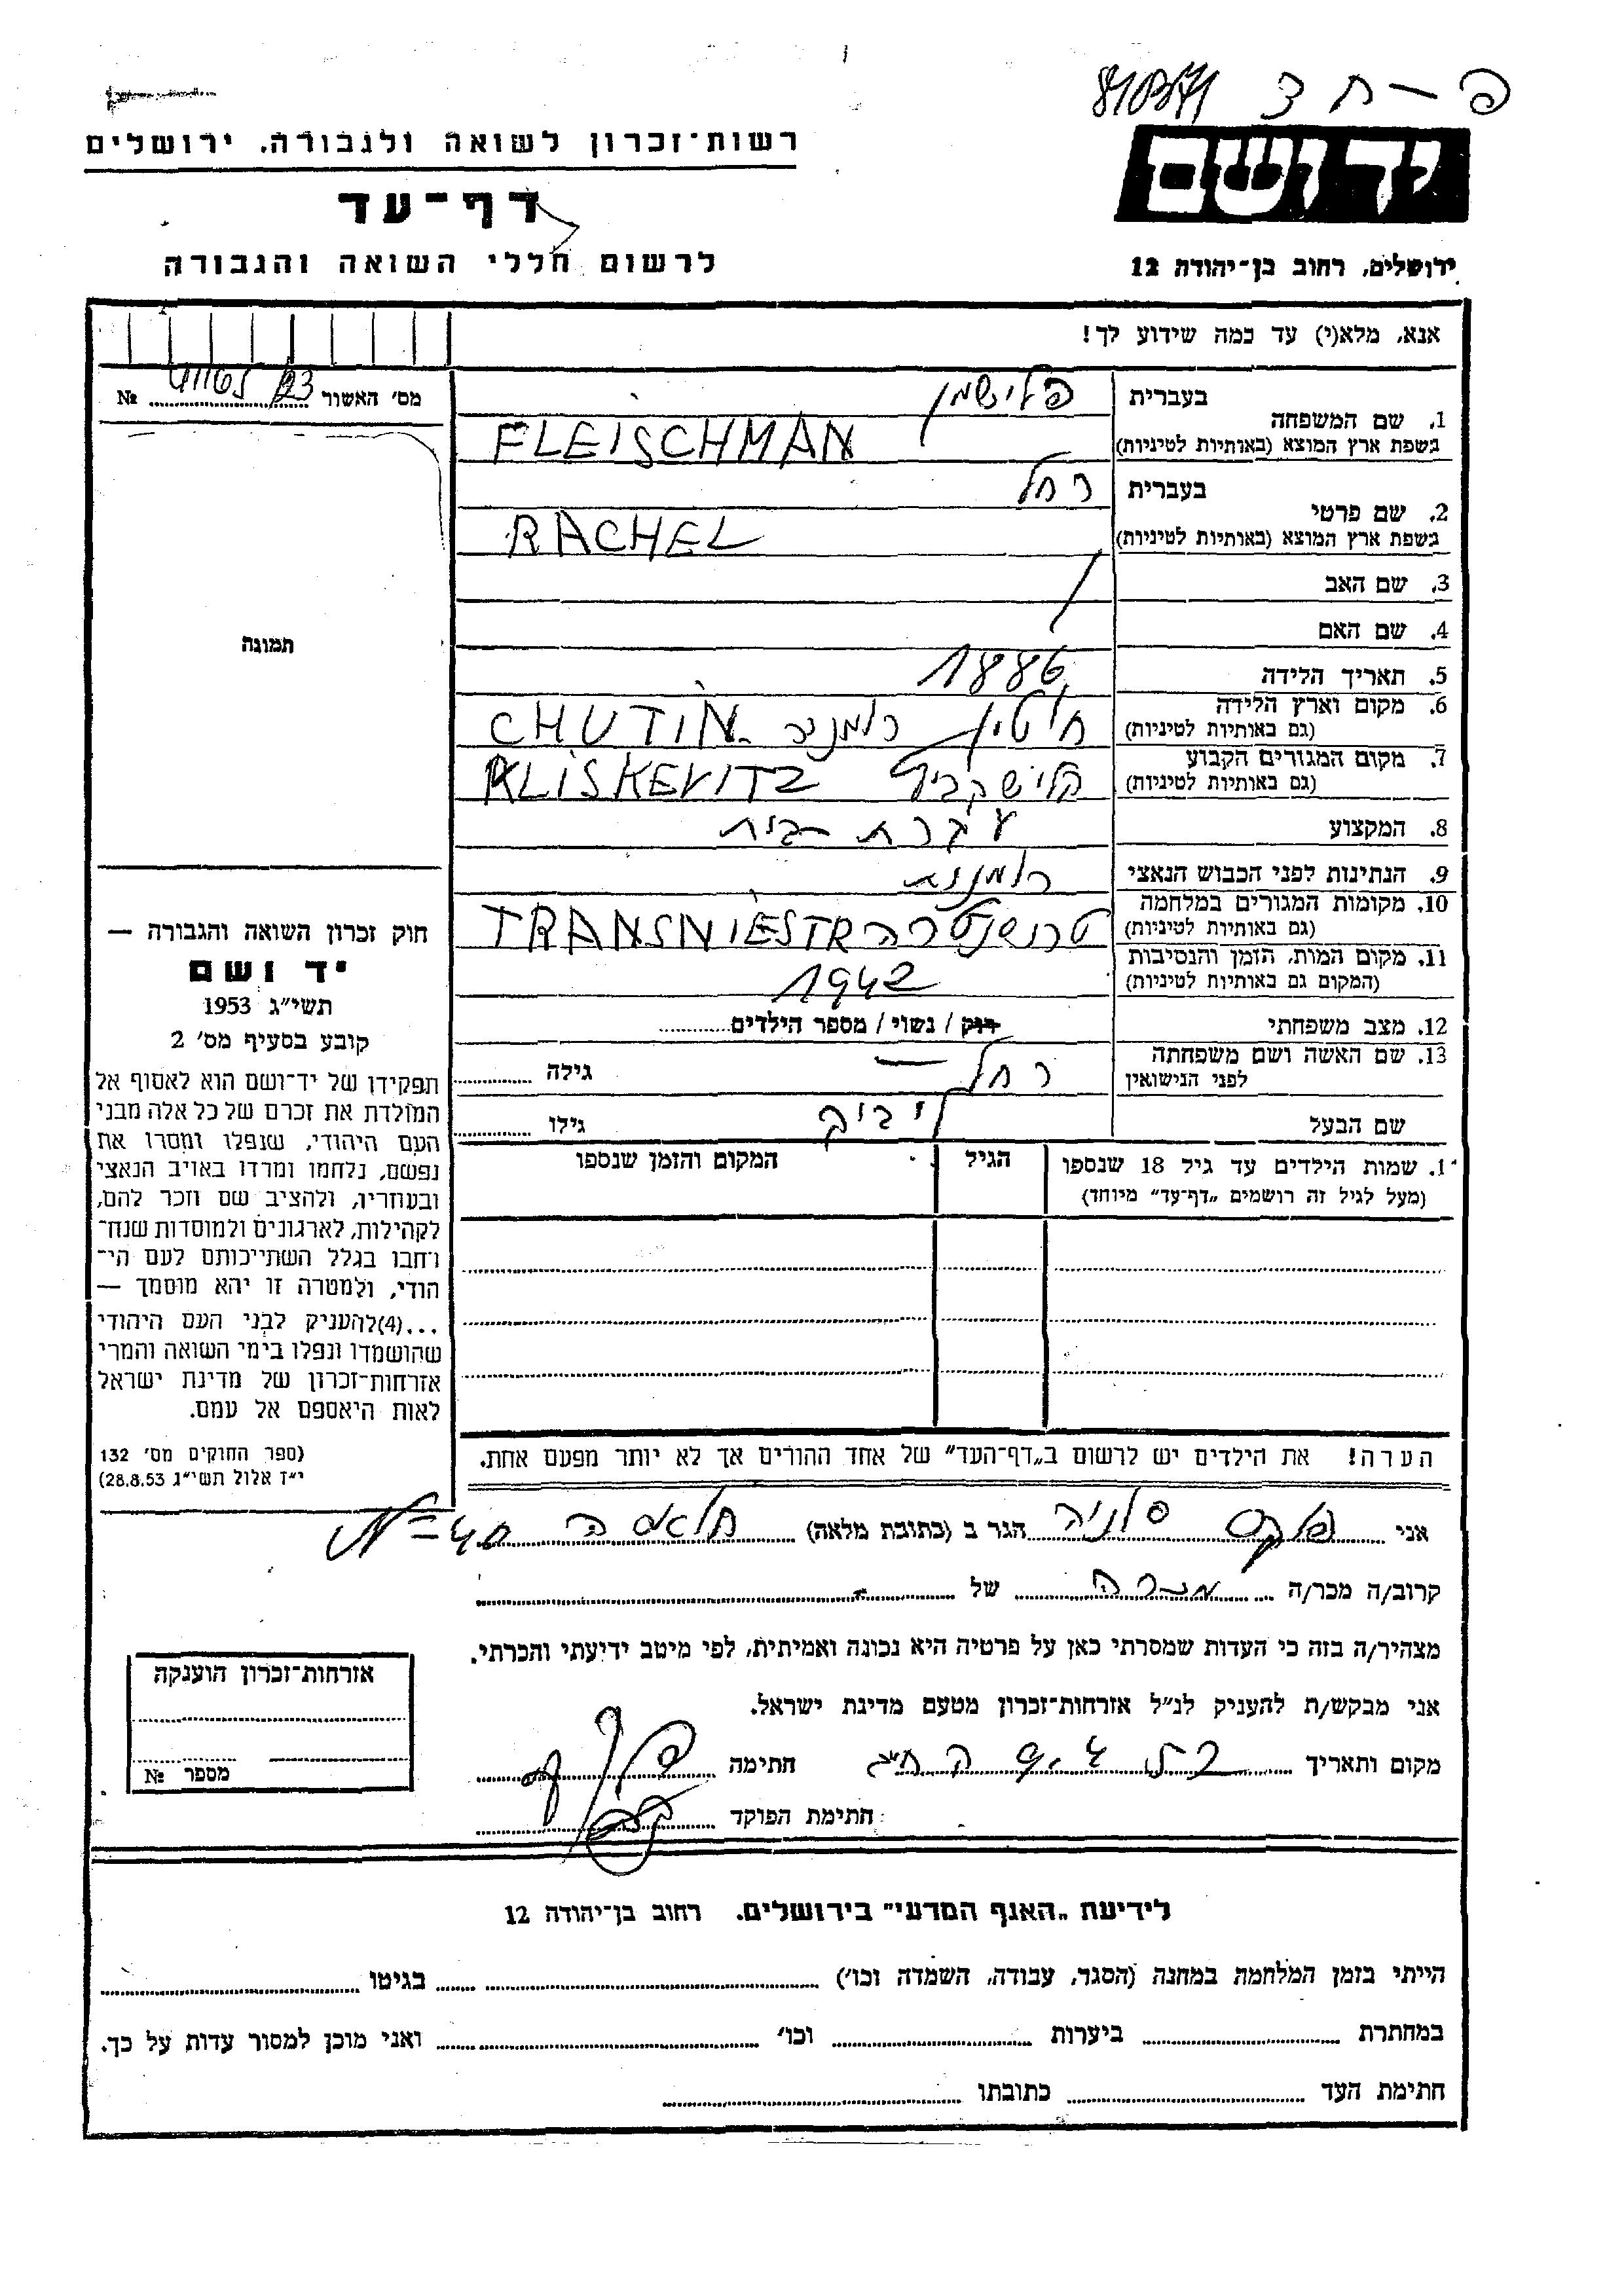 פ – ח 3
יד ושם
רשות־זכרון לשואה ולגבורה, ירושלים
דף־עד
לרשום חללי השואה והגבורה
ירושלים, רחוב בן־יהודה 12
אנא, מלא(י) עד כמה שידוע לך!
מס' האשור №
1. שם המשפחה בעברית פלישמן
בשפת ארץ המוצא (באותיות לטיניות) FLEISCHMAN
2. שם פרטי בעברית רחל
בשפת ארץ המוצא (באותיות לטיניות) RACHEL
3. שם האב
4. שם האם
תמונה
5. תאריך הלידה 1886
6. מקום וארץ הלידה
(גם באותיות לטיניות) חוטין רומניה CHUTIN
7. מקום המגורים הקבוע
(גם באותיות לטיניות) קלישקביץ KLISKEVITZ
8. המקצוע עקרת בית
9. הנתינות לפני הכבוש הנאצי רומנית
10. מקומות המגורים במלחמה
(גם באותיות לטיניות) TRANSNIESTR
11. מקום המות, הזמן והנסיבות
(המקום גם באותיות לטיניות) 1942
12. מצב משפחתי רווק / נשוי / מספר הילדים
13. שם האשה ושם משפחתה
לפני הנישואין רחל – גילה
שם הבעל גילו
1. שמות הילדים עד גיל 18 שנספו
(מעל לגיל זה רושמים „דף־עד” מיוחד)
הגיל
המקום והזמן שנספו
חוק זכרון השואה והגבורה —
יד ושם
תשי"ג 1953
קובע בסעיף מס' 2
תפקידן של יד־ושם הוא לאסוף אל
המולדת את זכרם של כל אלה מבני
העם היהודי, שנפלו ומסרו את
נפשם, נלחמו ומרדו באויב הנאצי
ובעוזריו, ולהציב שם וזכר להם,
לקהילות, לארגונים ולמוסדות שנח־
רחבו בגלל השתייכותם לעם הי־
הודי, ולמטרה זו יהא מוסמך —
...(4)להעניק לבני העם היהודי
שהושמדו ונפלו בימי השואה והמרי
אזרחות־זכרון של מדינת ישראל
לאות היאספם אל עמם.
(ספר החוקים מס' 132
י"ז אלול תשי"ג 28.8.53)
הערה! את הילדים יש לרשום ב„דף־העד” של אחד ההורים אך לא יותר מפעם אחת.
אני פוקס סוניה הגר ב (כתובת מלאה)
קרוב/ה מכר/ה מכרה של
מצהיר/ה בזה כי העדות שמסרתי כאן על פרטיה היא נכונה ואמיתית, לפי מיטב ידיעתי והכרתי.
אני מבקש/ת להעניק לנ"ל אזרחות־זכרון מטעם מדינת ישראל.
מקום ותאריך חתימה
חתימת הפוקד
אזרחות־זכרון הוענקה
מספר №
לידיעת „האגף המדעי” בירושלים. רחוב בן־יהודה 12
הייתי בזמן המלחמה במחנה (הסגר, עבודה, השמדה וכו') בגיטו
במחתרת ביערות וכו' ואני מוכן למסור עדות על כך.
חתימת העד כתובתו